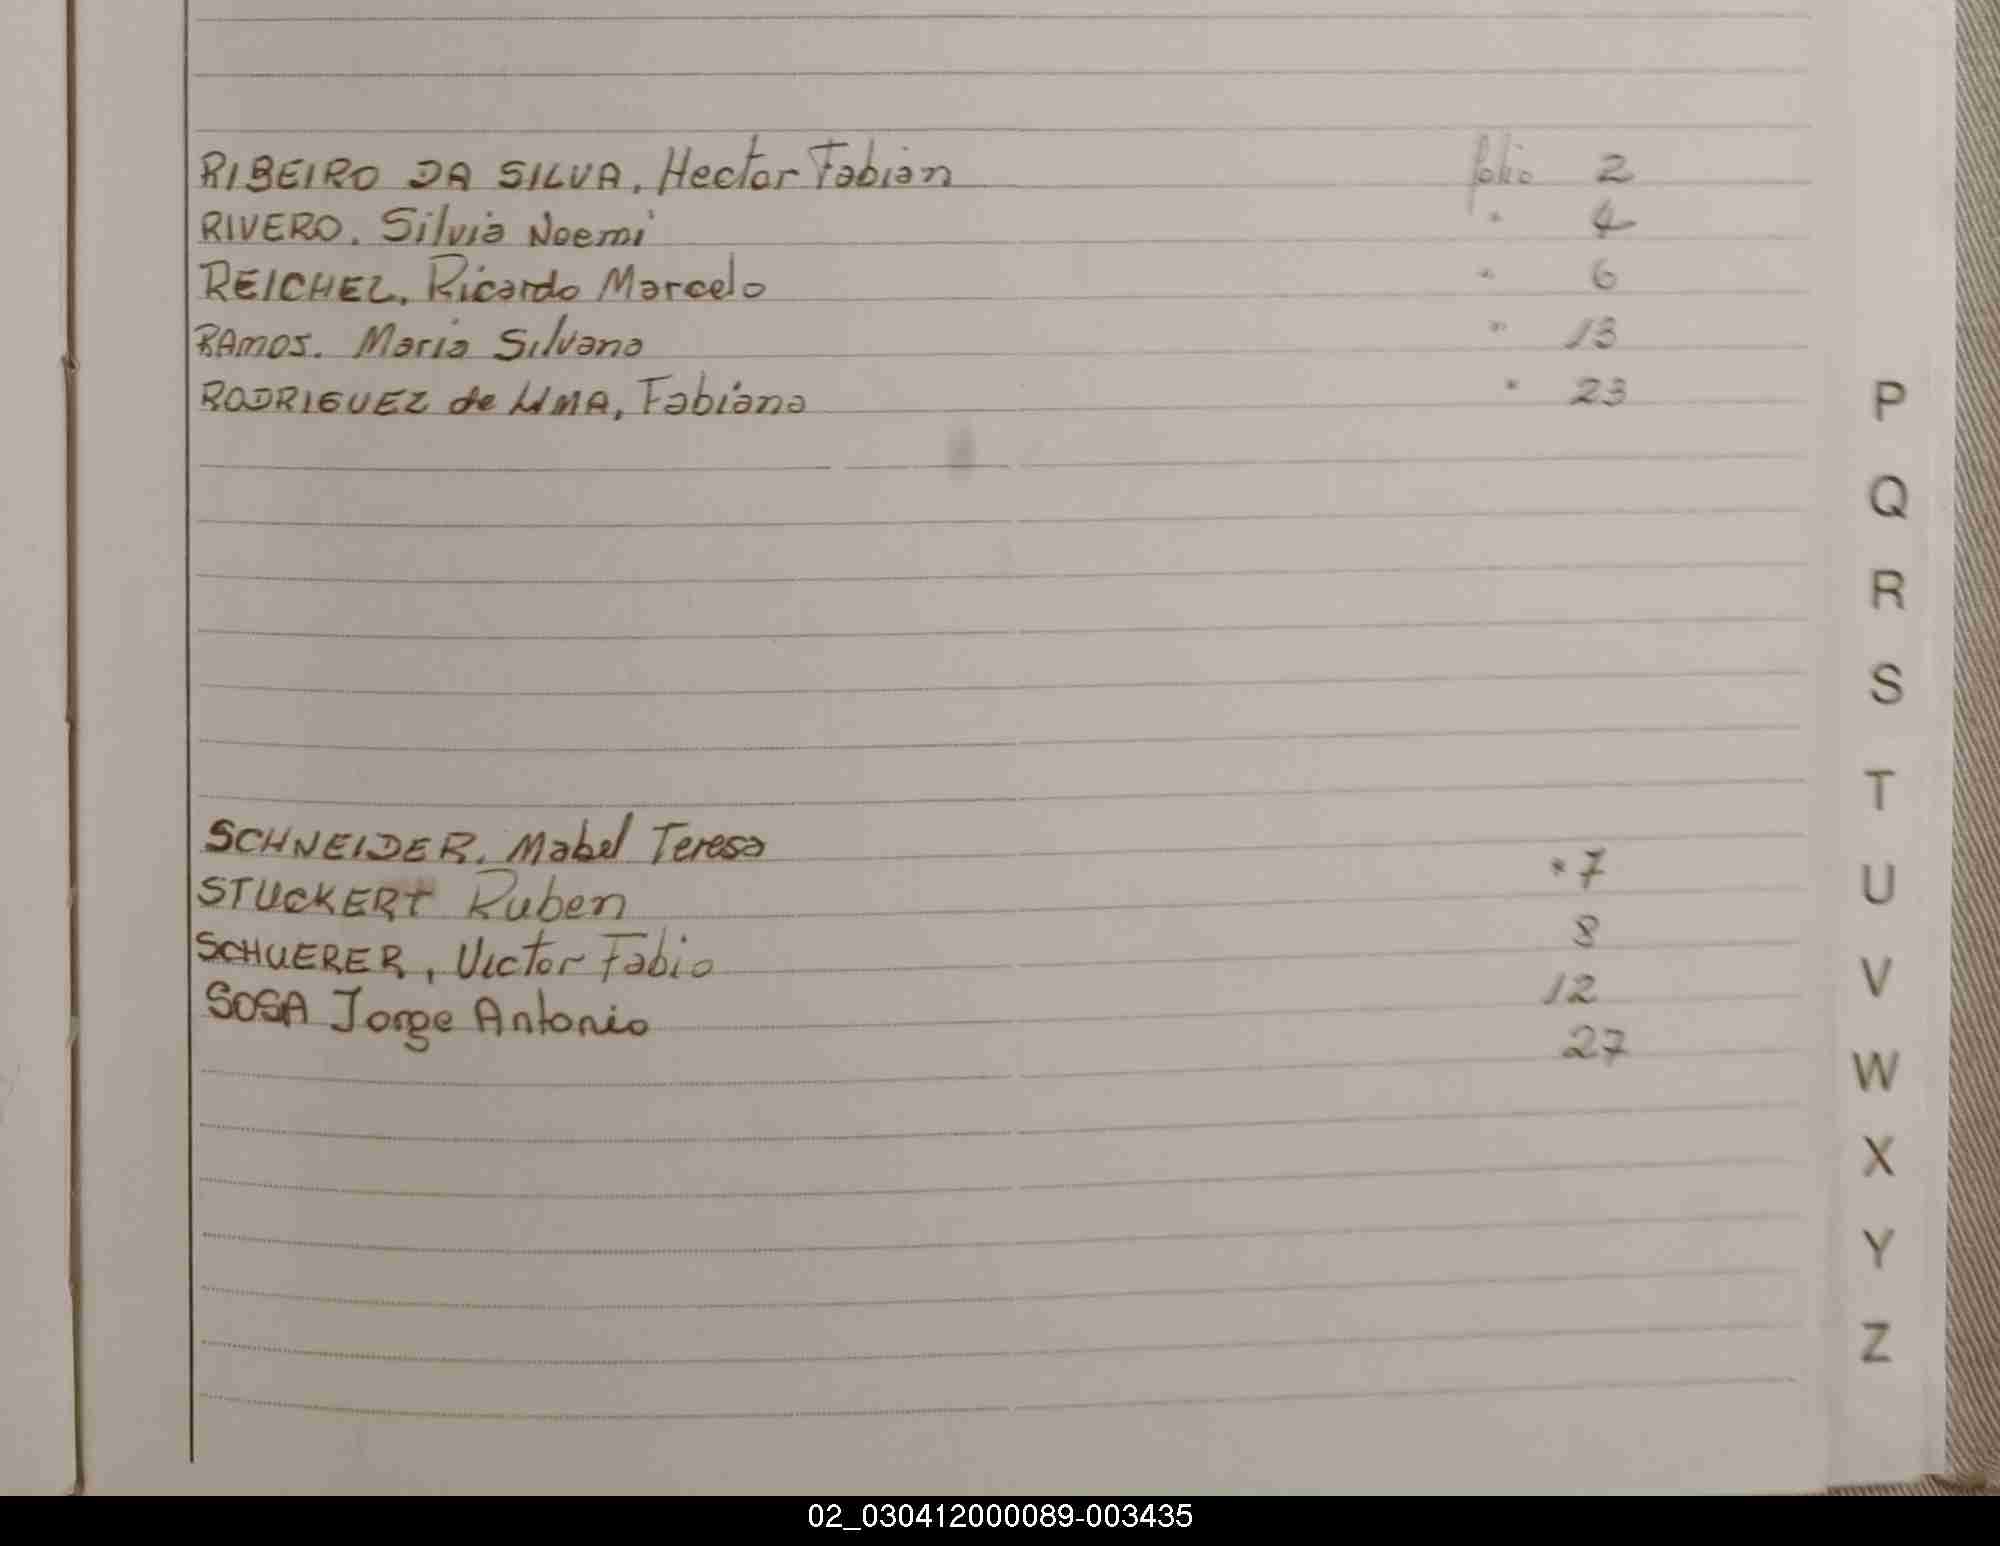 RIBEIRO DA SILVA, Hector Fabian folio 2
RIVERO. Silvia Noemi " 4
REICHEL, Ricardo Marcelo " 6
RAMOS. Maria Silvana " 13
RODRIGUEZ de LIMA, Fabiana " 23
SCHNEIDER. Mabel Teresa " 7
STUCKERT Ruben 8
SCHUERER, Victor Fabio 12
SOSA Jorge Antonio 27
P
Q
R
S
T
U
V
W
X
Y
Z
02_030412000089-003435